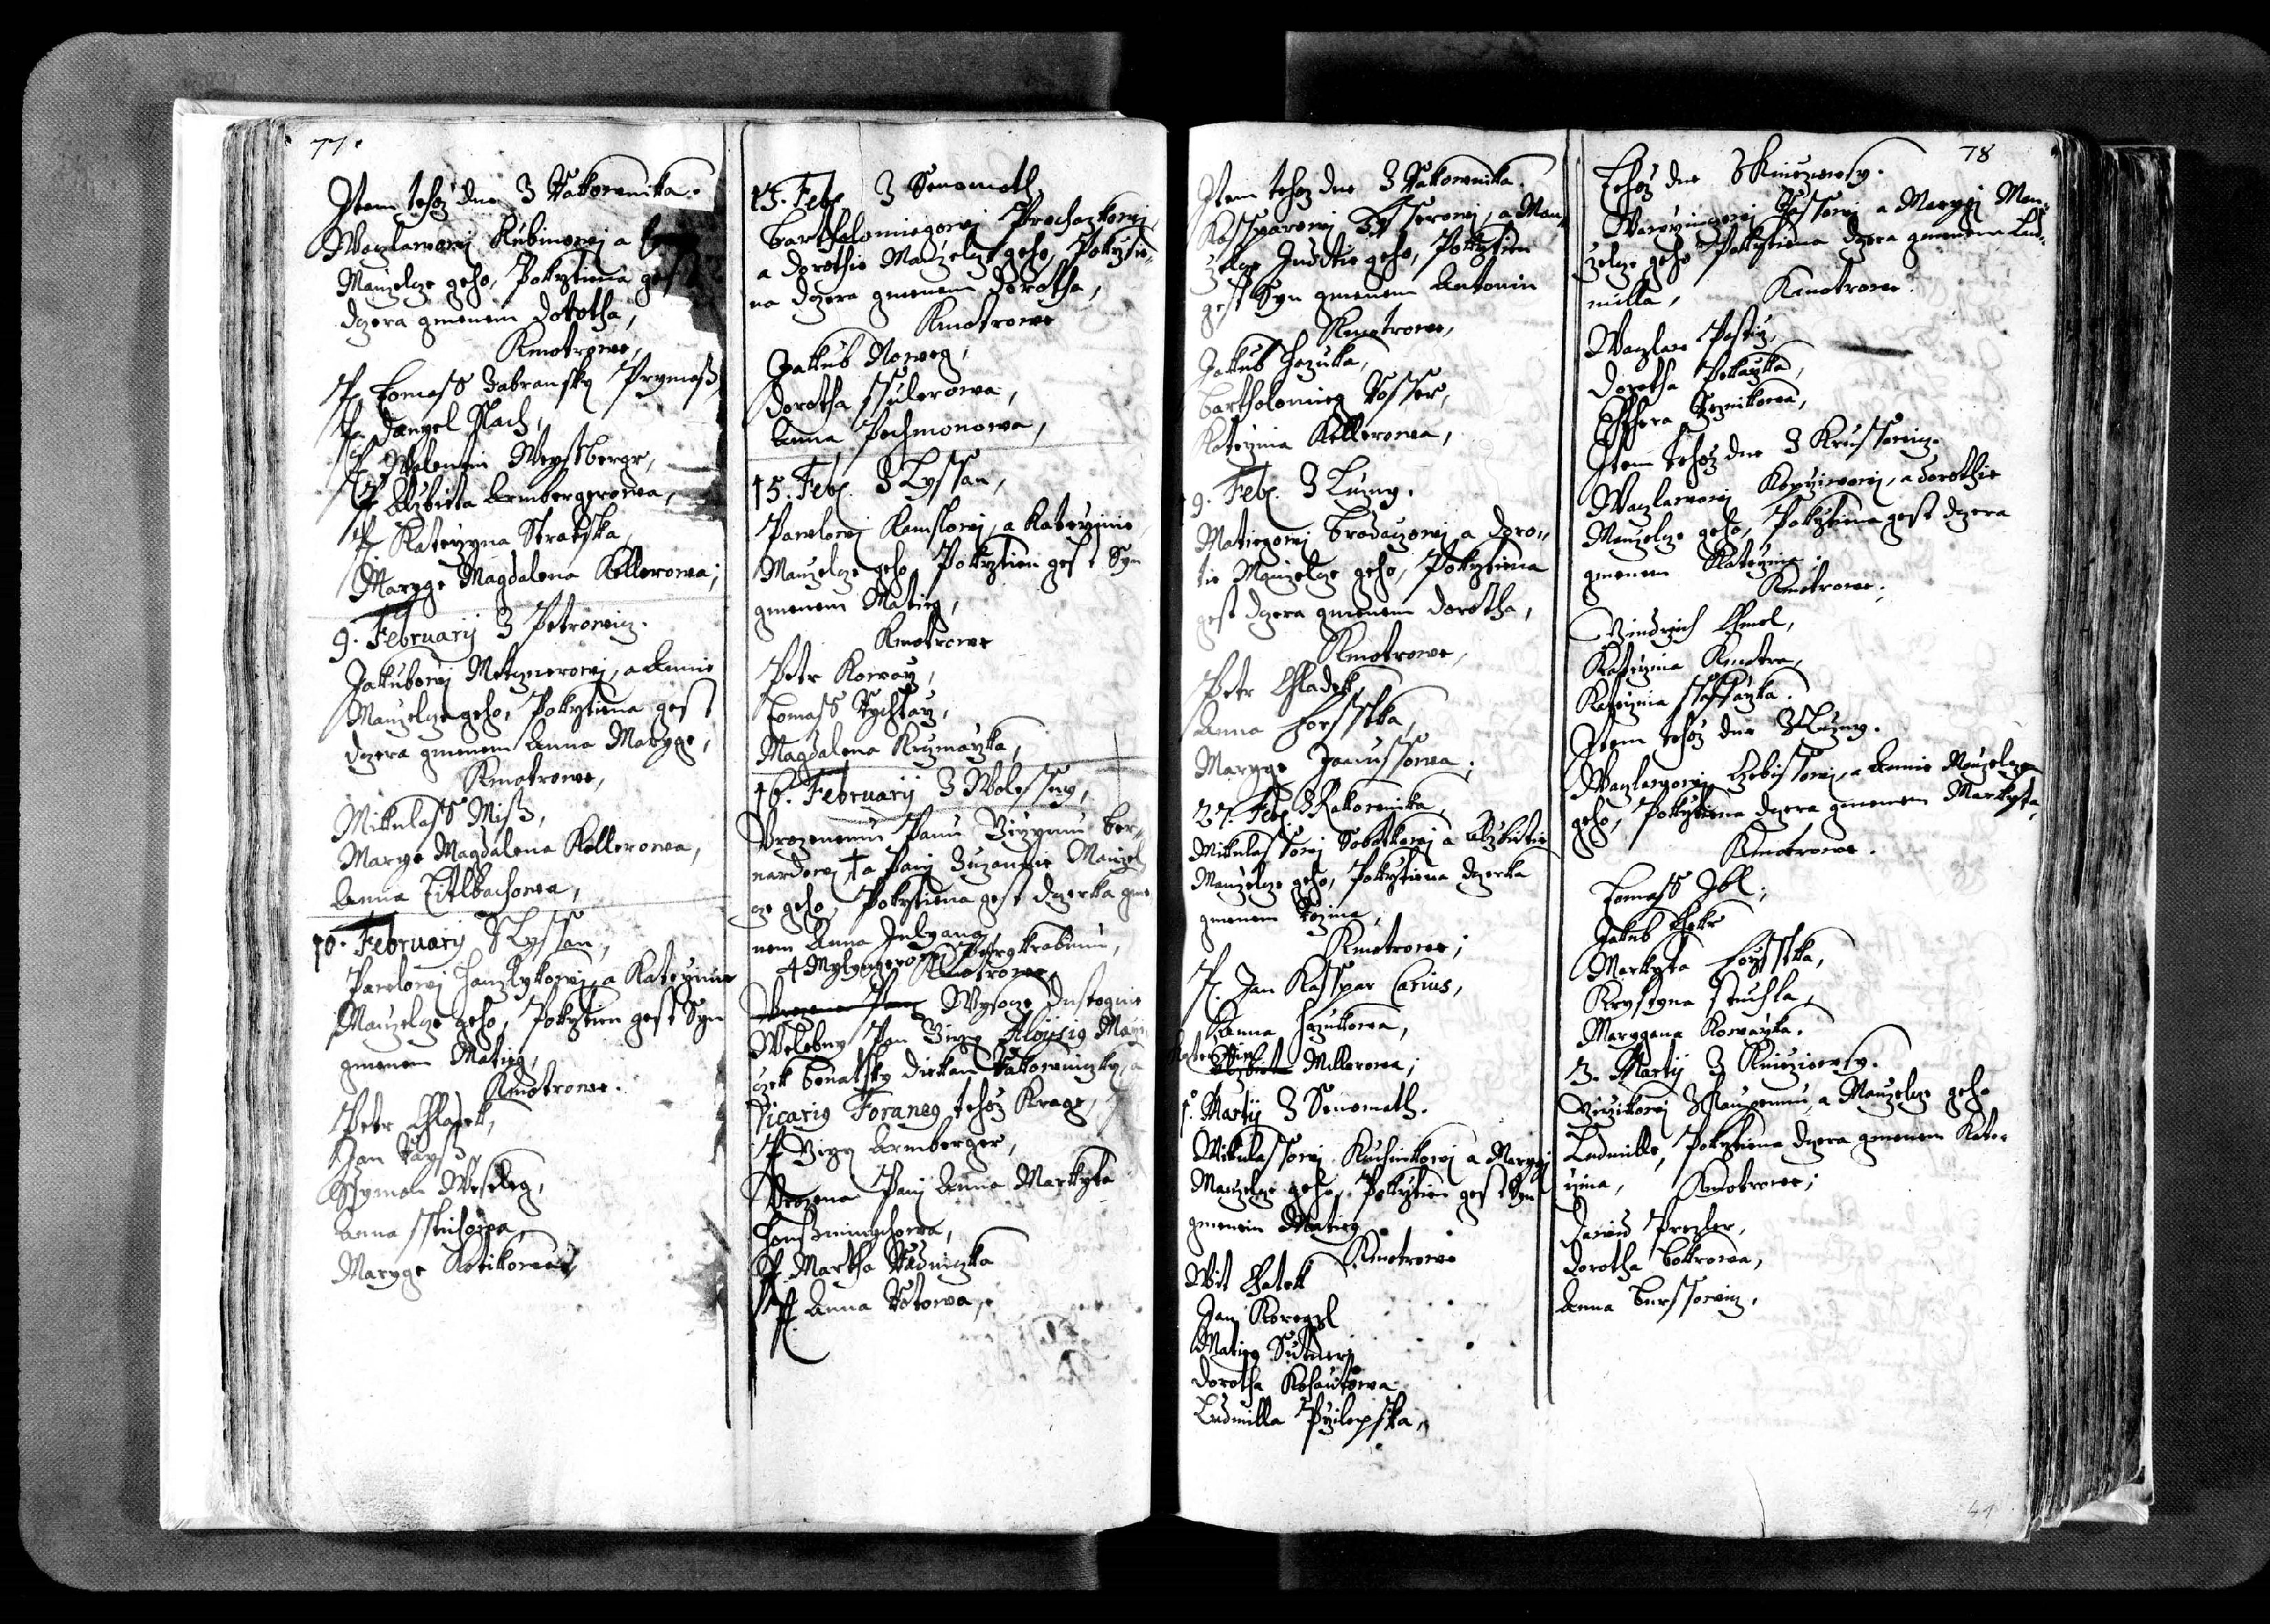 77.
Item tehoz dne Z Rakownika.
Waczlawowj Rubinowj a
Manzelcze geho, Pokrztiena gest
dczera gmenem Dorotha,
Kmotrowe,
P. Tomass Zabransky Prymass
P. Danyel Plach,
P. Walentin Weyssberger,
P. Alzbieta Armbergerowa,
P. Katerzyna Stratska,
Maryge Magdalena Kellerowa;
9. Februarij Z Petrowicz.
Jakubowj Metznerowj, a Annie
Manzelcze geho, Pokrztiena gest
dczera gmenem Anna Maryge,
Kmotrowe,
Mikulass Miss,
Maryge Magdalena Kellerowa,
Anna Titlbachowa,
10. Februarij Z Lyssan,
Pawlowj Hanzlykowj, a Katerzinie
Manzelcze geho, Pokrztien gest Syn
gmenem Matieg,
Kmotrowe.
Petr Chladek,
Jan Rayss,
Ssyman Weseleg,
Anna
Maryge Kotikowa,
13. Feb. Z Senomath,
Bartholomiegowj Prochazkowj
a Dorothie Manzelcze geho, Pokrztie-
na dczera gmenem Dorotha,
Kmotrowe
Jakub Norweg,
Dorotha Ssulerowa,
Anna Pechmonowa,
15. Feb. Z Lyssan,
Pawlowj Kamslowj, a Katerzinie
Manzelcze geho, Pokrztien gest Syn
gmenem Matieg,
Kmotrowe
Petr Kowarz,
Tomass Rychtarz,
Magdalena Krzmarzka,
16. Februarij Z Wolessny,
Urozenemu Panu Girzymu Ber-
nardowj + a Panj Zuzannie Manzel
cze geho, Pokrztiena gest dczerka gme-
nem Anna Julyana,
+ Mylyngerowj
Kmotrowe
Wysocze Dustogne
Welebny Pan Girzy Aloysig Mací-
czek Bonatsky Diekan Rakowniczky, a
Vicarig Foraneg tehoz Krage,
P. Girzy Armberger,
Urozena Panj Anna Markyta
P. Martha Radniczka
P. Anna Rotowa,
78
Item tehoz dne Z Rakownika.
Kassparowj a Man-
zelcze Judtie geho, Pokrztien
gest Syn gmenem Antonin
Kmotrowe,
Jakub Hazuka,
Bartholomieg Rosser,
Katerzina Kellerowa,
19. Feb. Z Luzny.
Matiegowj Bradaczowj a Doro-
tie Manzelcze geho, Pokrztiena
gest dczera gmenem Dorotha,
Kmotrowe,
Petr Chladek
Anna Forsstka,
Maryge Janussowa;
27. Feb. Z Rakownika,
Mikulassowj Sobotkowj a Alzbietie
Manzelcze geho, Pokrztiena dczerka
gmenem Rozina,
Kmotrowe;
P. Jan Kasspar Carius,
Anna Hazukowa,
Millerowa;
1. Martij Z Senomath.
Mikulassowj Kuchinkowj a Marygi
Manzelcze geho, Pokrztien gest Syn
gmenem Matieg
Kmotrowe
Wit Chatek
Jan
Matieg Sutner
Dorotha Kohautowa
Ludmilla Przilepska,
Tehoz dne Z Kniezewsy.
Wawrzinczowj a Marygi Man-
zelcze geho Pokrztiena dczera gmenem Lud-
milla, Kmotrowe.
Waczlaw
Dorotha Pekarzka,
Item tehoz dne Z Krussowicz.
Waczlawowj a Dorothie
Manzelcze geho, Pokrztiena gest dczera
gmenem Katerzina,
Kmotrowe;
Gindrzich Chmel,
Katerzina Kmotra,
Katerzina Ssaffarzka.
Item tehoz dne Z Luzny.
Waczlawowj a Annie Manzelcze
geho, Pokrztiena dczera gmenem Markyta,
Kmotrowe.
Tomass Jbl,
Jakub
Markyta Forsstka,
Krystyna
Marygana Kowarzka.
3. Martij Z Kniezewsy.
Girzikowj a Manzelcze geho
Ludmille, Pokrztiena dczera gmenem Kate-
rzina, Kmotrowe;
Dawid Prczler,
Dorotha Bokrowa,
Anna